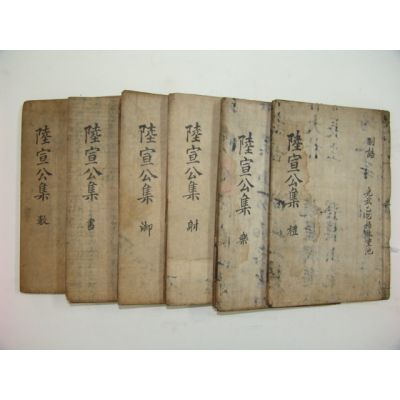 制誥
陸宣公集 禮
陸宣公集 樂
陸宣公集 射
陸宣公集 御
陸宣公集 書
陸宣公集 數